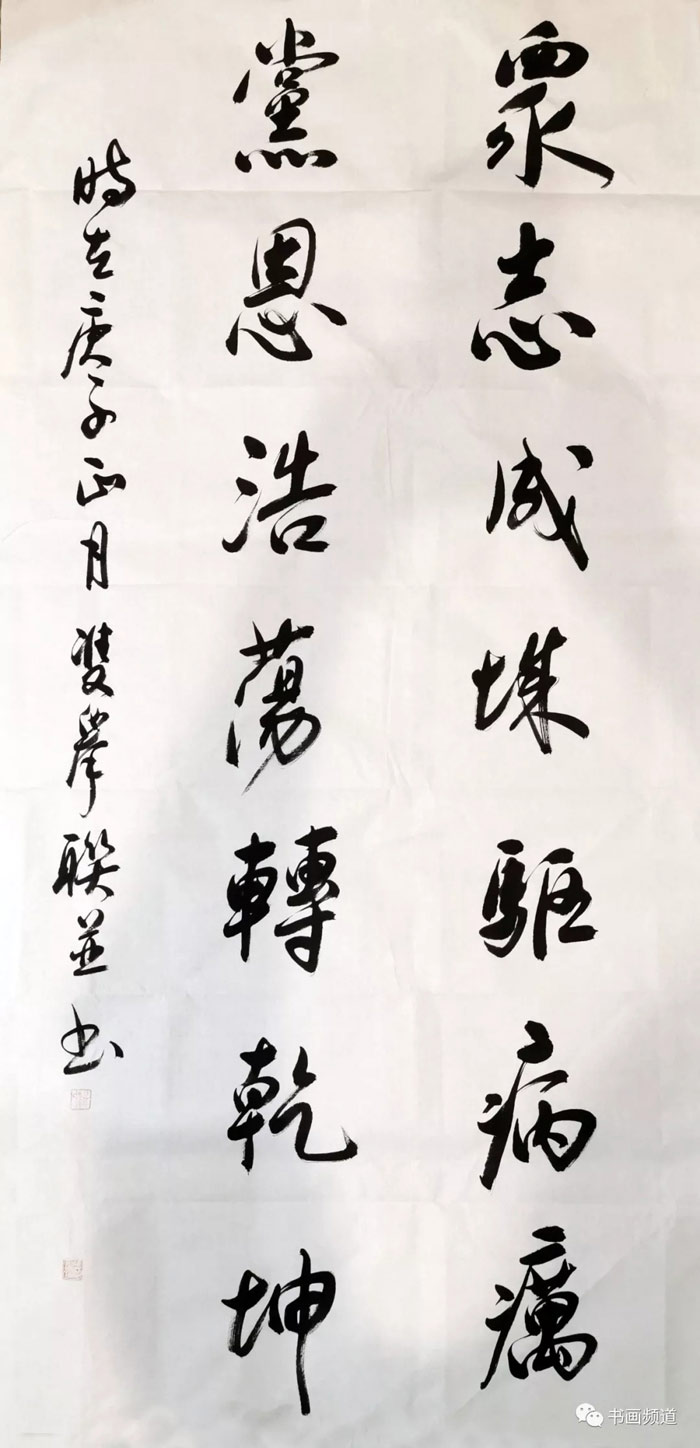 眾志成城驅病癘
黨恩浩蕩轉乾坤
時在庚子正月雙舉聯並书
书画频道